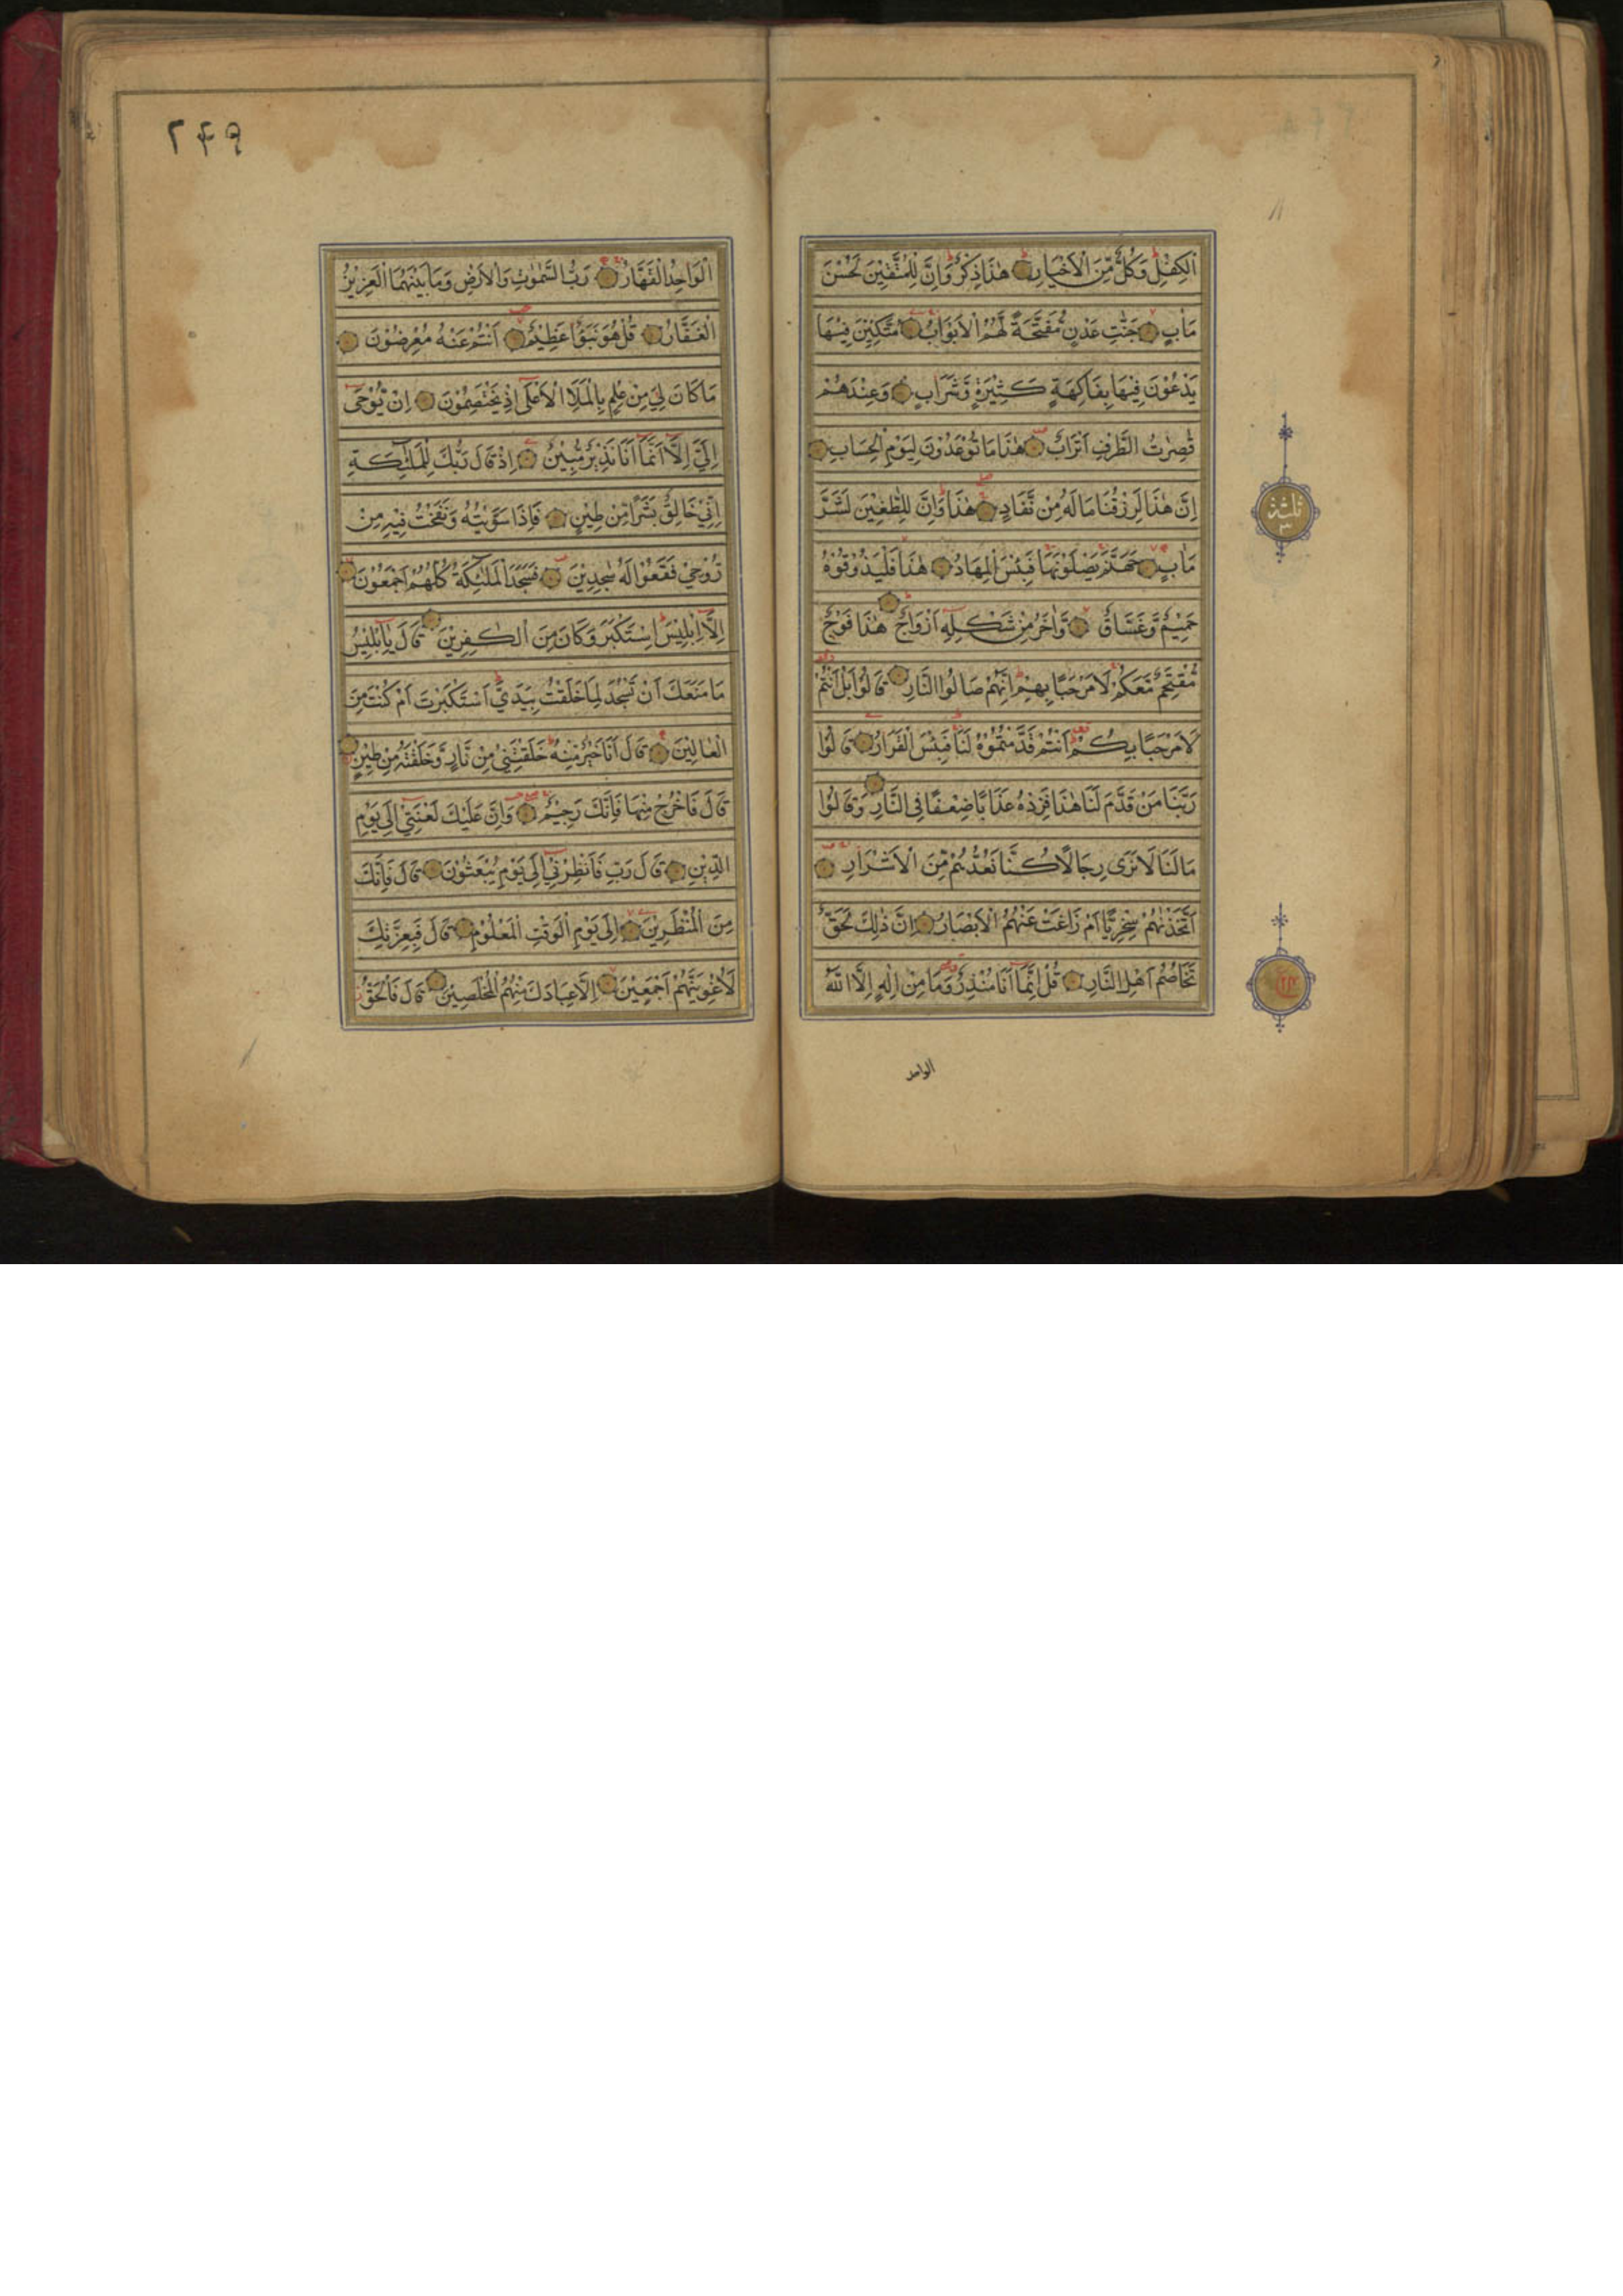 الْكِفْلِ وَكُلٌّ مِّنَ الْاَخْيَارِ هٰذَا ذِكْرٌ وَاِنَّ لِلْمُتَّقِيْنَ لَحُسْنَ
مَاٰبٍ جَنّٰتِ عَدْنٍ مُّفَتَّحَةً لَّهُمُ الْاَبْوَابُ مُتَّكِئِيْنَ فِيْهَا
يَدْعُوْنَ فِيْهَا بِفَاكِهَةٍ كَثِيْرَةٍ وَّشَرَابٍ وَعِنْدَهُمْ
قٰصِرٰتُ الطَّرْفِ اَتْرَابٌ هٰذَا مَا تُوْعَدُوْنَ لِيَوْمِ الْحِسَابِ
اِنَّ هٰذَا لَرِزْقُنَا مَا لَهُ مِنْ نَّفَادٍ هٰذَا وَاِنَّ لِلطّٰغِيْنَ لَشَرَّ
مَاٰبٍ جَهَنَّمَ يَصْلَوْنَهَا فَبِئْسَ الْمِهَادُ هٰذَا فَلْيَذُوْقُوْهُ
حَمِيْمٌ وَّغَسَّاقٌ وَّاٰخَرُ مِنْ شَكْلِهٖ اَزْوَاجٌ هٰذَا فَوْجٌ
مُّقْتَحِمٌ مَّعَكُمْ لَا مَرْحَبًا بِهِمْ اِنَّهُمْ صَالُوا النَّارِ قَالُوْا بَلْ اَنْتُمْ
لَا مَرْحَبًا بِكُمْ اَنْتُمْ قَدَّمْتُمُوْهُ لَنَا فَبِئْسَ الْقَرَارُ قَالُوْا
رَبَّنَا مَنْ قَدَّمَ لَنَا هٰذَا فَزِدْهُ عَذَابًا ضِعْفًا فِى النَّارِ وَقَالُوْا
مَا لَنَا لَا نَرٰى رِجَالًا كُنَّا نَعُدُّهُمْ مِّنَ الْاَشْرَارِ
اَتَّخَذْنٰهُمْ سِخْرِيًّا اَمْ زَاغَتْ عَنْهُمُ الْاَبْصَارُ اِنَّ ذٰلِكَ لَحَقٌّ
تَخَاصُمُ اَهْلِ النَّارِ قُلْ اِنَّمَا اَنَا مُنْذِرٌ وَّمَا مِنْ اِلٰهٍ اِلَّا اللّٰهُ
الواحد
ثلثة
٣
٢٤٩
الْوَاحِدُ الْقَهَّارُ رَبُّ السَّمٰوٰتِ وَالْاَرْضِ وَمَا بَيْنَهُمَا الْعَزِيْزُ
الْغَفَّارُ قُلْ هُوَ نَبَؤٌا عَظِيْمٌ اَنْتُمْ عَنْهُ مُعْرِضُوْنَ
مَا كَانَ لِيَ مِنْ عِلْمٍ بِالْمَلَاِ الْاَعْلٰى اِذْ يَخْتَصِمُوْنَ اِنْ يُّوْحٰى
اِلَيَّ اِلَّا اَنَّمَا اَنَا نَذِيْرٌ مُّبِيْنٌ اِذْ قَالَ رَبُّكَ لِلْمَلٰئِكَةِ
اِنِّيْ خَالِقٌ بَشَرًا مِّنْ طِيْنٍ فَاِذَا سَوَّيْتُهُ وَنَفَخْتُ فِيْهِ مِنْ
رُّوْحِيْ فَقَعُوْا لَهُ سٰجِدِيْنَ فَسَجَدَ الْمَلٰئِكَةُ كُلُّهُمْ اَجْمَعُوْنَ
اِلَّا اِبْلِيْسَ اِسْتَكْبَرَ وَكَانَ مِنَ الْكٰفِرِيْنَ قَالَ يٰاِبْلِيْسُ
مَا مَنَعَكَ اَنْ تَسْجُدَ لِمَا خَلَقْتُ بِيَدَيَّ اَسْتَكْبَرْتَ اَمْ كُنْتَ مِنَ
الْعَالِيْنَ قَالَ اَنَا خَيْرٌ مِّنْهُ خَلَقْتَنِيْ مِنْ نَّارٍ وَّخَلَقْتَهُ مِنْ طِيْنٍ
قَالَ فَاخْرُجْ مِنْهَا فَاِنَّكَ رَجِيْمٌ وَّاِنَّ عَلَيْكَ لَعْنَتِيْ اِلٰى يَوْمِ
الدِّيْنِ قَالَ رَبِّ فَاَنْظِرْنِيْ اِلٰى يَوْمِ يُبْعَثُوْنَ قَالَ فَاِنَّكَ
مِنَ الْمُنْظَرِيْنَ اِلٰى يَوْمِ الْوَقْتِ الْمَعْلُوْمِ قَالَ فَبِعِزَّتِكَ
لَاُغْوِيَنَّهُمْ اَجْمَعِيْنَ اِلَّا عِبَادَكَ مِنْهُمُ الْمُخْلَصِيْنَ قَالَ فَالْحَقُّ